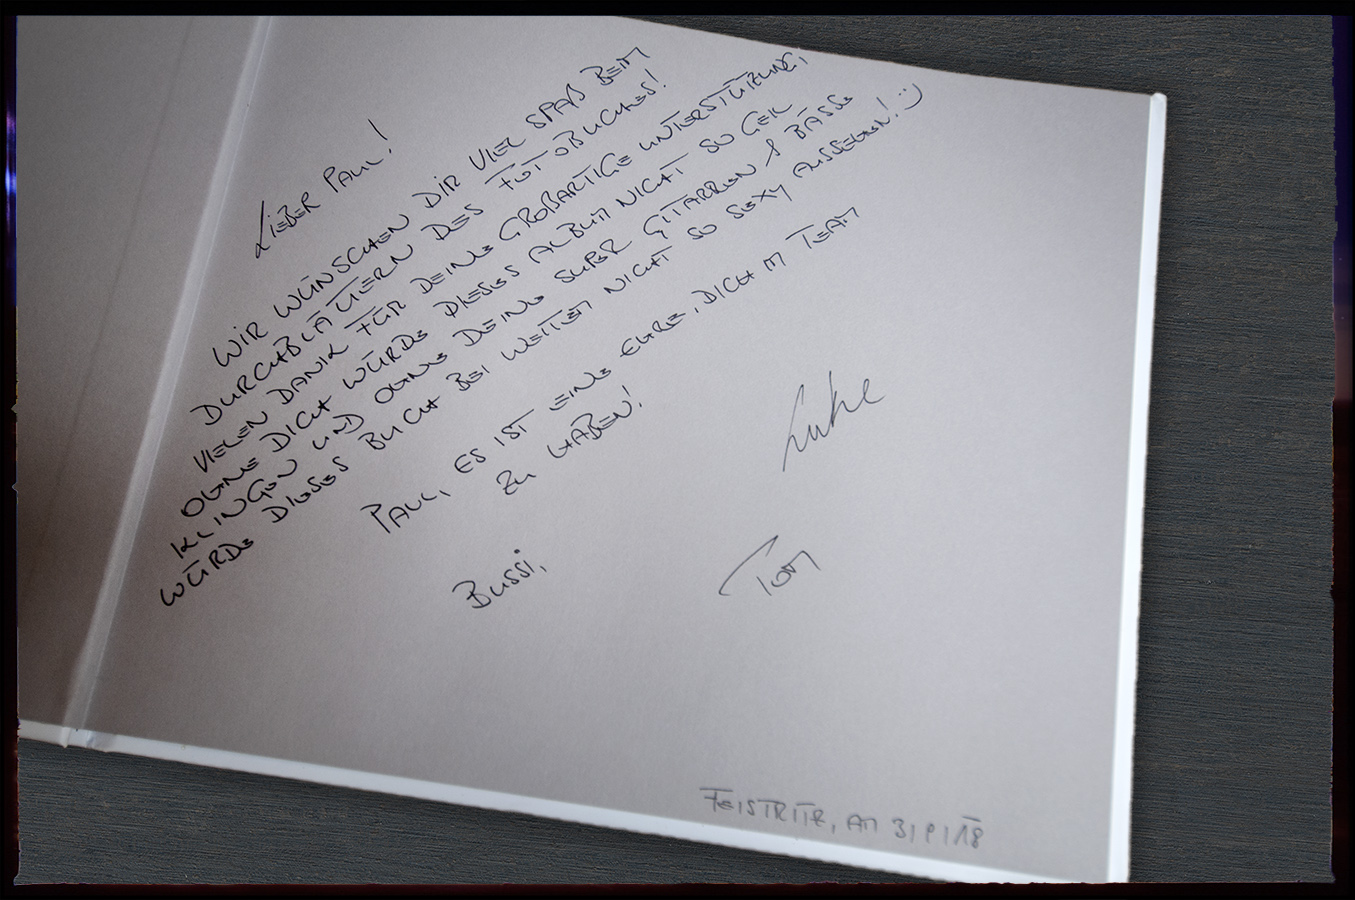 LIEBER PAUL!
WIR WÜNSCHEN DIR VIEL SPAß BEIM
DURCHBLÄTTERN DES FOTOBUCHES!
VIELEN DANK FÜR DEINE GROßARTIGE UNTERSTÜTZUNG,
OHNE DICH WÜRDE DIESES ALBUM NICHT SO GEIL
KLINGEN UND OHNE DEINE SUPER GITARREN & BÄSSE
WÜRDE DIESES BUCH BEI WEITEM NICHT SO SEXY AUSSEHEN! :-)
PAUL, ES IST EINE EHRE, DICH IM TEAM
ZU HABEN!
BUSSI,
Luke
TOM
FEISTRITZ, AM 3|9|18